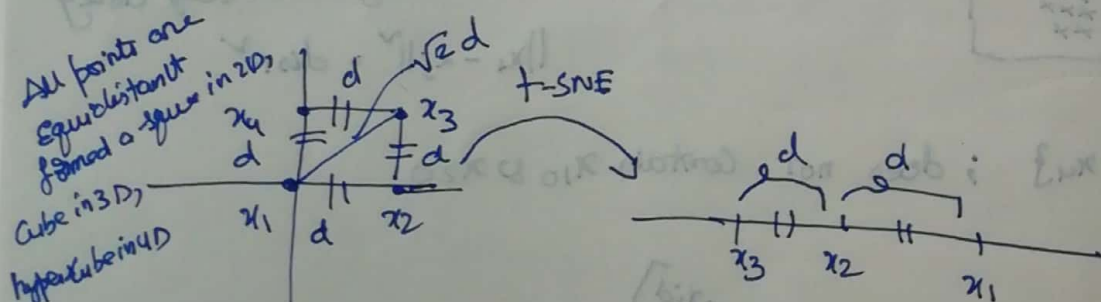 All points are
Equidistant
formed a square in 2D,
Cube in 3D,
hypercube in 4D
√2 d
d
x4
x3
d
d
x1
d
x2
t-SNE
d
d
x3
x2
x1
x4}; does not contain x10